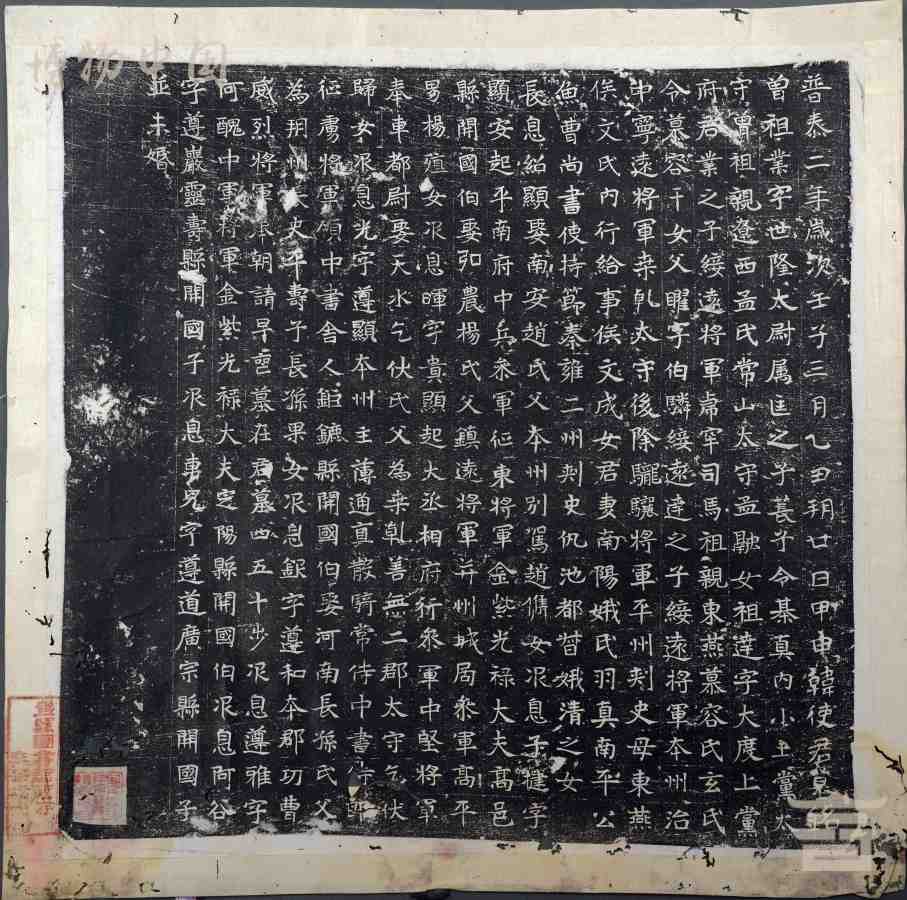 普泰二年歲次壬子三月乙丑朔廿日甲申韓使君墓銘
曾祖業字世隆太尉属匡之子養子令綦真內小上黨太
守曾祖親遼西孟氏常山太守孟融女祖蓬字大度上黨
府君業之子綏遠將軍虎牢司馬祖親東燕慕容氏玄氏
令慕容干女父曜字伯驎綏遠蓬之子綏遠將軍本州治
中寧遠將軍桒乹太守後除驪驤將軍平州刾史母東燕
侯文氏內行給事侯文成女君妻南陽娥氏羽真南平公
魚曹尚書使持節秦雍二州刾史仇池都督娥清之女
長息紹顯娶南安趙氏父本州別駕趙儁女次息子健字
顯安起平南府中兵叅軍征東將軍金紫光禄大夫高邑
縣開國伯娶弘農楊氏父鎮遠將軍并州城局叅軍高平
男楊㝎女次息暉字貴顯起大丞相府行叅軍中堅將軍
奉車都尉娶天水乞伏氏父為桒乹善無二郡太守乞伏
歸女次息光字遵顯本州主薄通直散騎常侍中書侍郎
征虜將軍領中書舍人鉅鏕縣開國伯娶河南長孫氏父
為朔州大史平壽子長孫果女次息銀字遵和本郡功曹
威烈將軍奉朝請早亡墓在君墓西五十步次息遵雅字
阿醜中軍將軍金紫光禄大夫㝎陽縣開國伯次息阿谷
字遵巖靈壽縣開國子次息事宄字遵道廣宗縣開國子
並未婚
博物中国